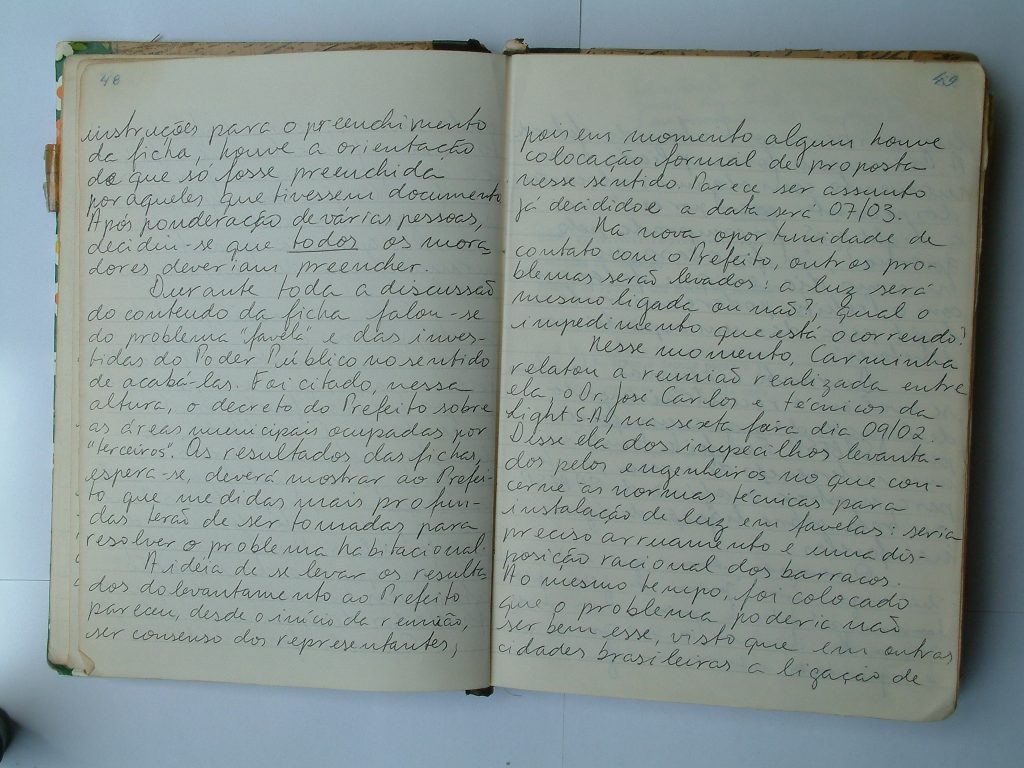 48
instruções para o preenchimento
da ficha, houve a orientação
de que so fosse preenchida
por aqueles que tivessem documento.
Após ponderação de várias pessoas,
decidiu-se que todos os mora-
dores deveriam preencher.
Durante toda a discussão
do conteudo da ficha falou-se
do problema "favela" e das inves-
tidas do Poder Público no sentido
de acabá-las. Foi citado, nessa
altura, o decreto do Prefeito sobre
as áreas municipais ocupadas por
"terceiros". Os resultados das fichas,
espera-se, deverá mostrar ao Prefei-
to que medidas mais profun-
das terão de ser tomadas para
resolver o problema habitacional.
A ideia de se levar os resulta
dos do levantamento ao Prefeito
pareceu, desde o início da reunião,
ser consenso dos representantes,
49
pois em momento algum houve
colocação formal de proposta
nesse sentido. Parece ser assunto
já decidido e a data será 07/03.
Na nova oportunidade de
contato com o Prefeito, outros pro-
blemas serão levados: a luz será
mesmo ligada ou não?, qual o
impedimento que está ocorrendo?
Nesse momento, Carminha
relatou a reunião realizada entre
ela, o Dr. José Carlos e técnicos da
Light S.A, na sexta feira dia 09/02.
Disse ela dos impecilhos levanta-
dos pelos engenheiros no que con-
cerne às normas técnicas para
instalação de luz em favelas: seria
preciso arruamento e uma dis-
posição racional dos barracos.
Ao mesmo tempo, foi colocado
que o problema poderia não
ser bem esse, visto que em outras
cidades brasileiras a ligação de